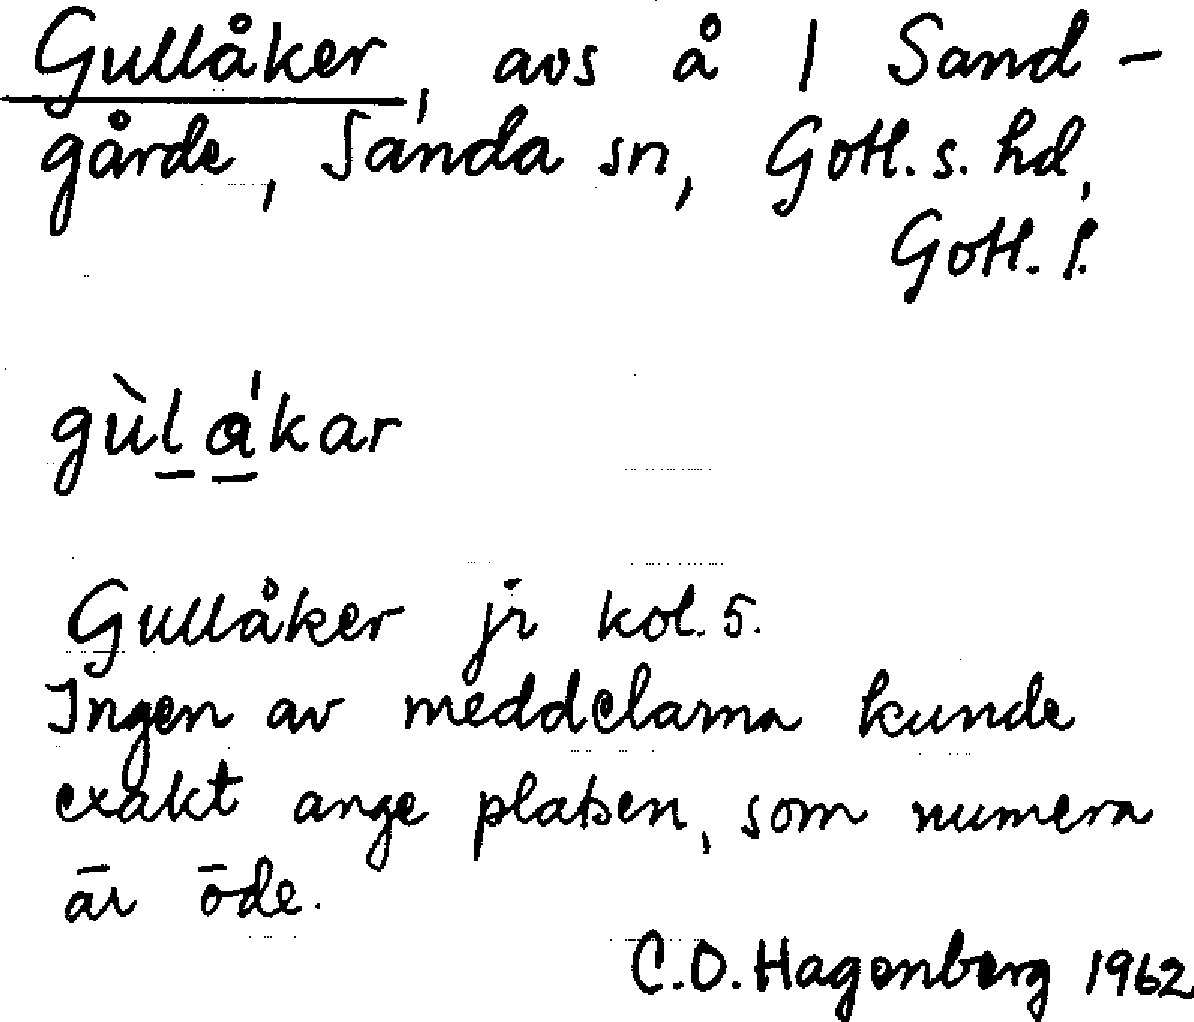 Gullåker, avs å 1 Sand-
gårde, Sanda sn, Gotl. s. hd,
Gotl. l.
gùlákar
Gullåker jr kol. 5.
Ingen av meddelarna kunde
exakt ange platsen, som numera
är öde.
C.O. Hagenberg 1962